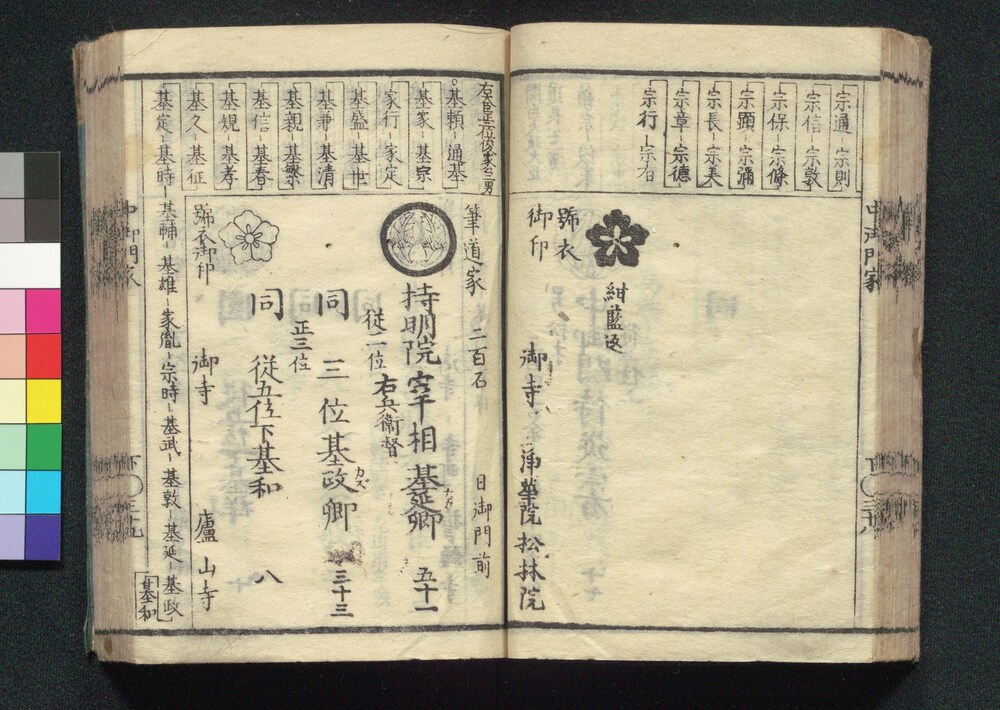 宗通 宗則
宗信 宗敦
宗保 宗條
宗顕 宗濔
宗長 宗美
宗章 宗德
宗行 宗有
紺藍返
號衣
御印
御寺
浄華院松林院
中御門家
基頼 通基
基家 基宗
家行 家定
基盛 基世
基兼 基清
基親 基繁
基信 基春
基規 基孝
基久 基征
基定 基時
筆道家
二百石
日御門前
持明院宰相基延卿
五十一
従二位
右兵衛督
同
三位基政卿
カズ
三十三
正三位
同
従五位下基和
八
號衣御印
御寺
廬山寺
基輔 基雄 家胤 宗時 基武 基敦 基延 基政
基和
中御門家